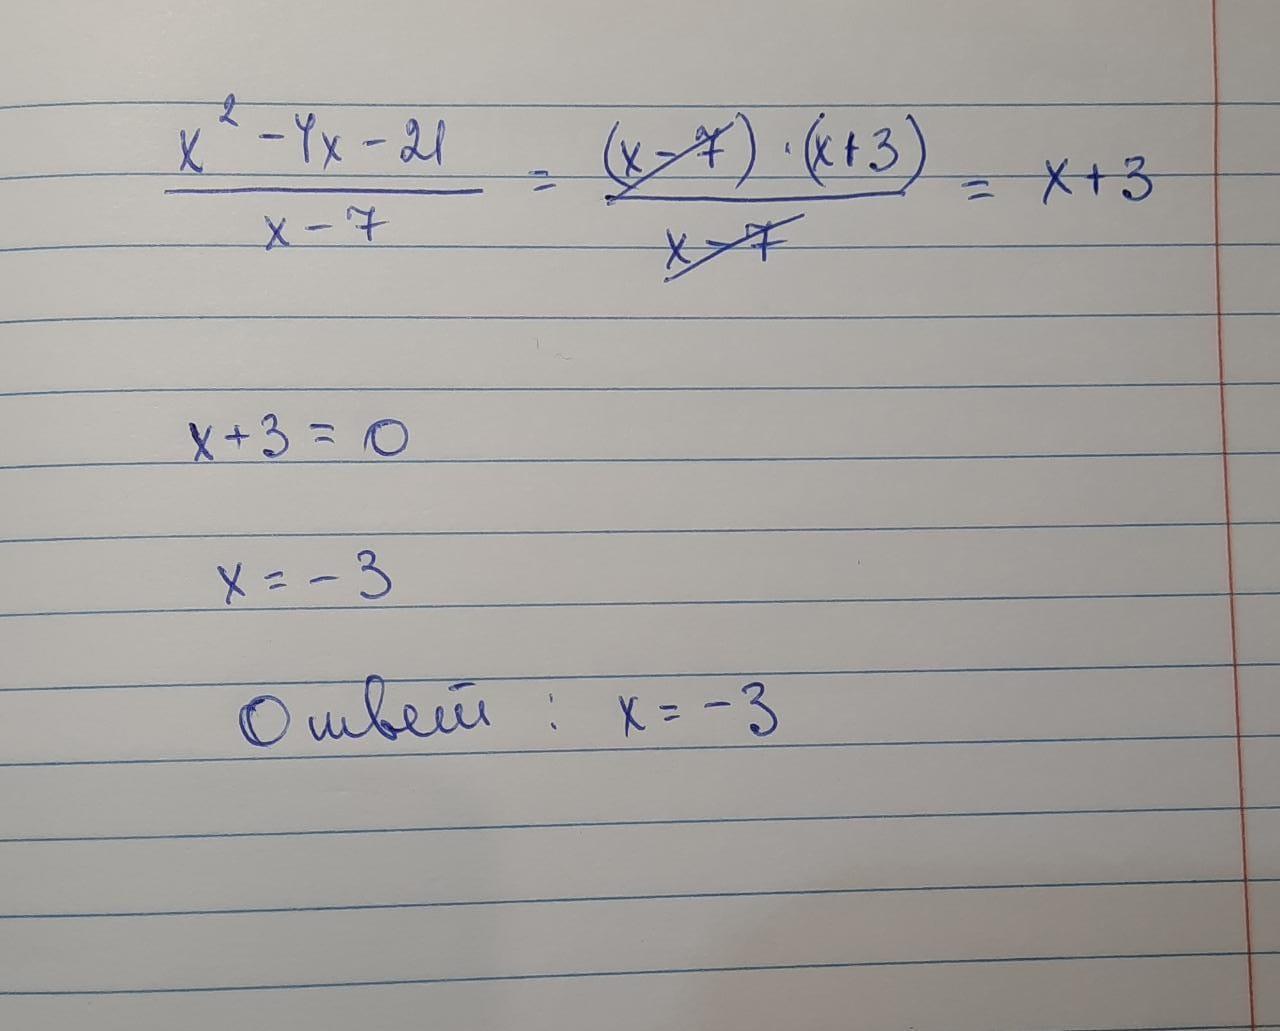 x² - 4x - 21 / x - 7 = (x - 7) · (x + 3) / x - 7 = x + 3
x + 3 = 0
x = - 3
Ответ : x = - 3